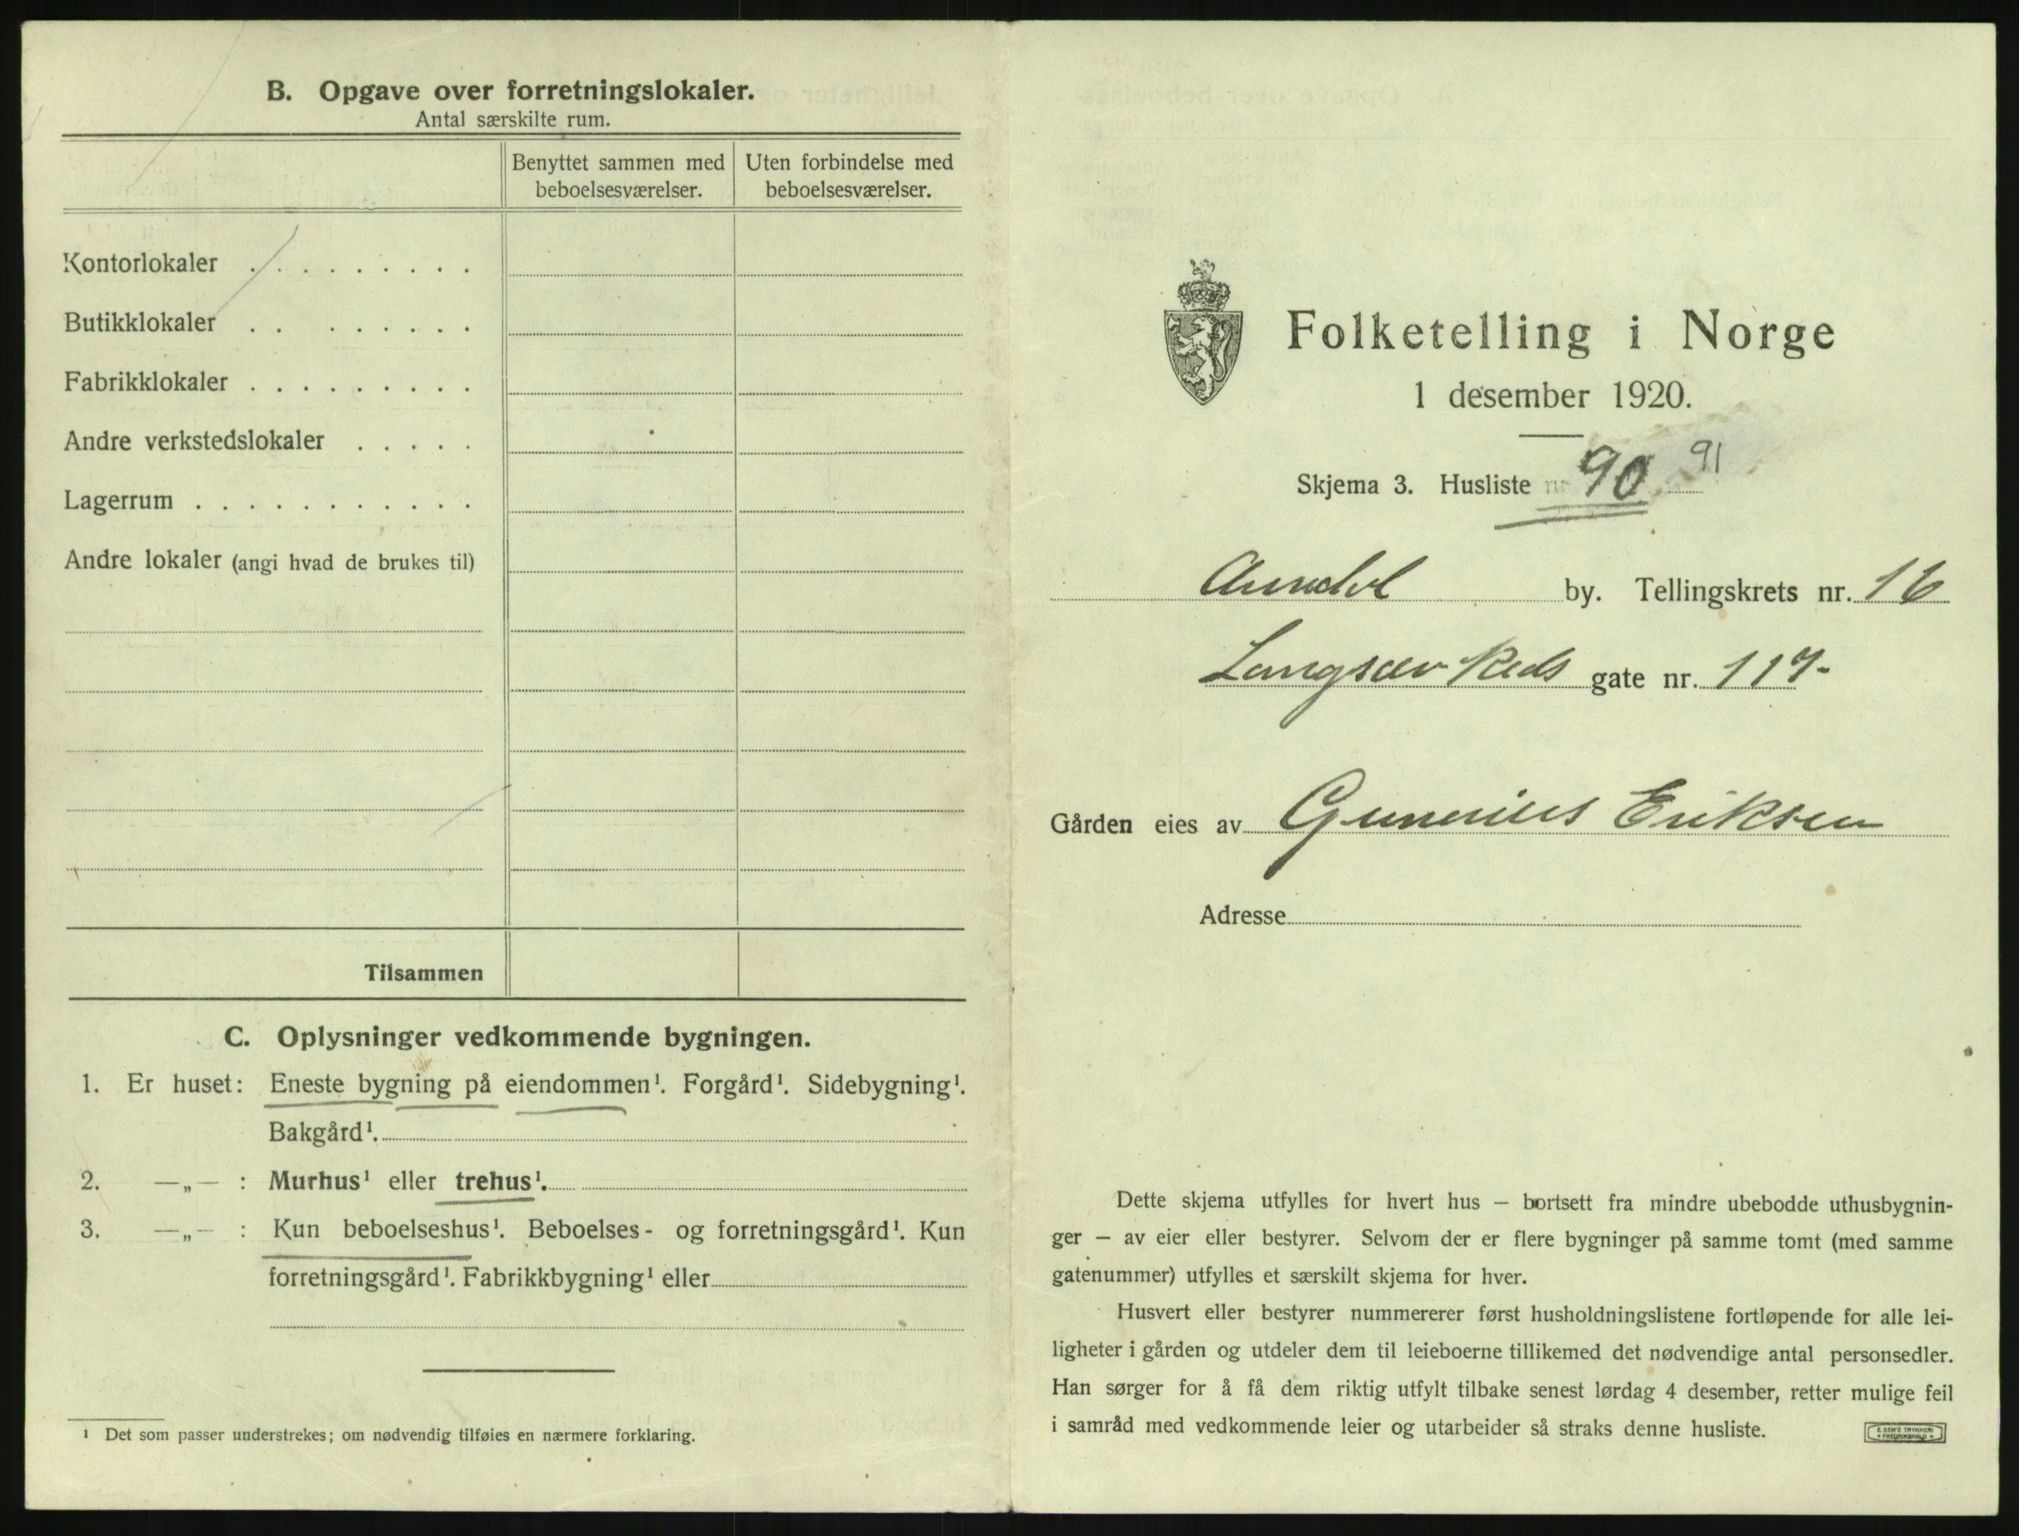 B. Opgave over forretningslokaler.
Antal særskilte rum.
Benyttet sammen med
beboelsesværelser.
Uten forbindelse med
beboelsesværelser.
Kontorlokaler . . . . . . . . .
Butikklokaler . . . . . . . .
Fabrikklokaler . . . . . . . . .
Andre verkstedslokaler . . . . .
Lagerrum . . . . . . . . . . .
Andre lokaler (angi hvad de brukes til)
Tilsammen
C. Oplysninger vedkommende bygningen.
1. Er huset: Eneste bygning på eiendommen¹. Forgård¹. Sidebygning¹.
Bakgård¹.
2. —„— : Murhus¹ eller trehus¹.
3. —„— : Kun beboelseshus¹. Beboelses- og forretningsgård¹. Kun
forretningsgård¹. Fabrikkbygning¹ eller
¹ Det som passer understrekes; om nødvendig tilføies en nærmere forklaring.
Folketelling i Norge
1 desember 1920.
Skjema 3. Husliste nr. 90 91
Arendal by. Tellingskrets nr. 16
gate nr. 117-
Gården eies av Gunerius Eriksen
Adresse
Dette skjema utfylles for hvert hus — bortsett fra mindre ubebodde uthusbygnin-
ger — av eier eller bestyrer. Selvom der er flere bygninger på samme tomt (med samme
gatenummer) utfylles et særskilt skjema for hver.
Husvert eller bestyrer nummererer først husholdningslistene fortløpende for alle lei-
ligheter i gården og utdeler dem til leieboerne tillikemed det nødvendige antal personsedler.
Han sørger for å få dem riktig utfylt tilbake senest lørdag 4 desember, retter mulige feil
i samråd med vedkommende leier og utarbeider så straks denne husliste.
E. SEM'S TRYKKERI
FREDRIKSHALD